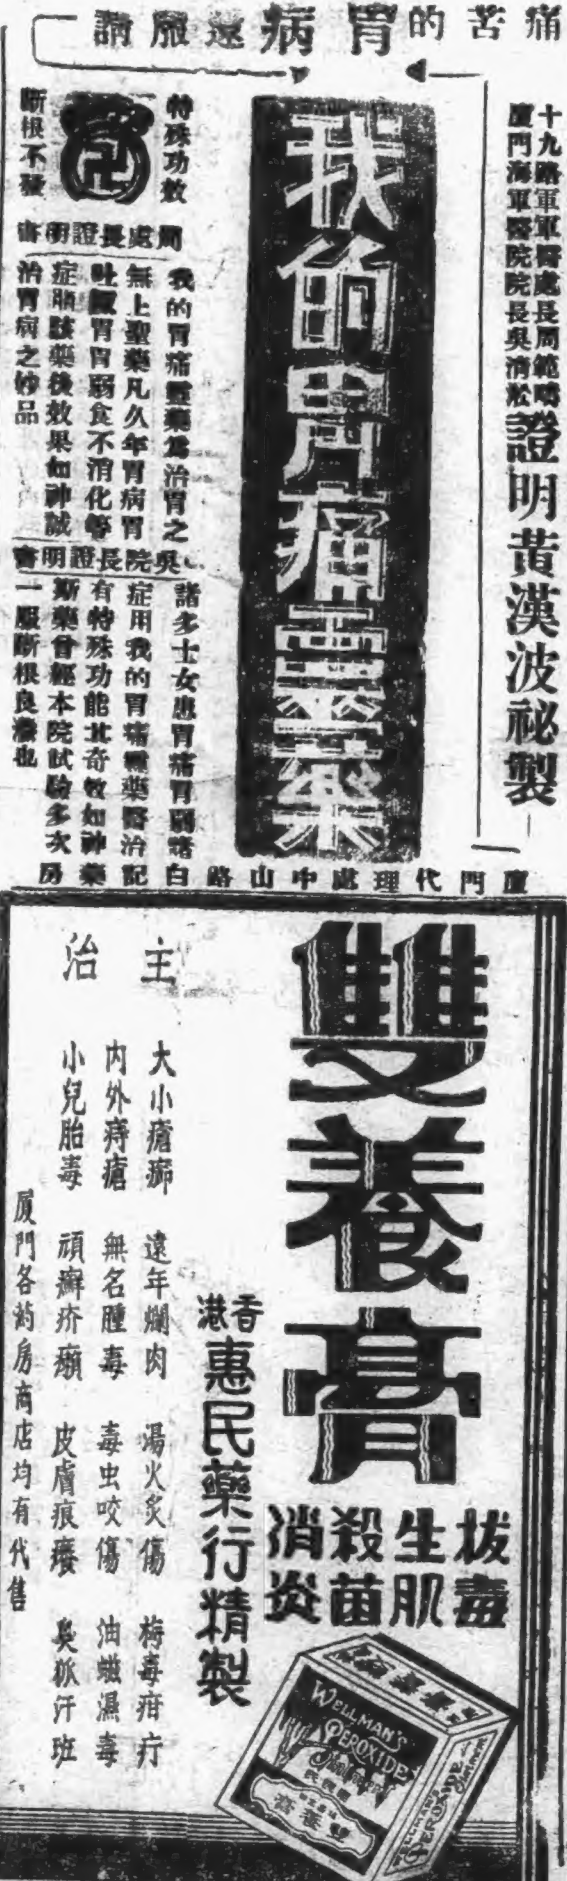 痛苦的胃病還服請
十九路軍軍醫處長周範
廈門海軍醫院院長吳濟
證明黃漢波祕製
我的胃痛靈藥
特殊功效
斷根不發
周處長證明書
我的胃痛靈藥為治胃之
無上聖藥凡久年胃病胃
吐酸胃胃弱食不消化等
症用該藥後效果如神誠
治胃病之妙品
吳院長證明書
諸多士女患胃痛胃弱諸
症用我的胃痛靈藥醫治
有特殊功能其奇效如神
斯藥曾經本院試驗多次
一服斷根良藥也
廈門代理處中山路白記藥房
雙養膏
拔毒
生肌
殺菌
消炎
香港惠民藥行精製
主治
大小瘡癤 遠年爛肉 湯火炙傷 梅毒疳疔
內外痔瘡 無名腫毒 毒虫咬傷 油螆濕毒
小兒胎毒 頑癬疥癩 皮膚痕癢 臭狐汗班
厦門各葯房商店均有代售
WELLMAN'S
PEROXIDE
Ointment
雙養膏
WELLMAN'S
PEROXIDE
Ointment